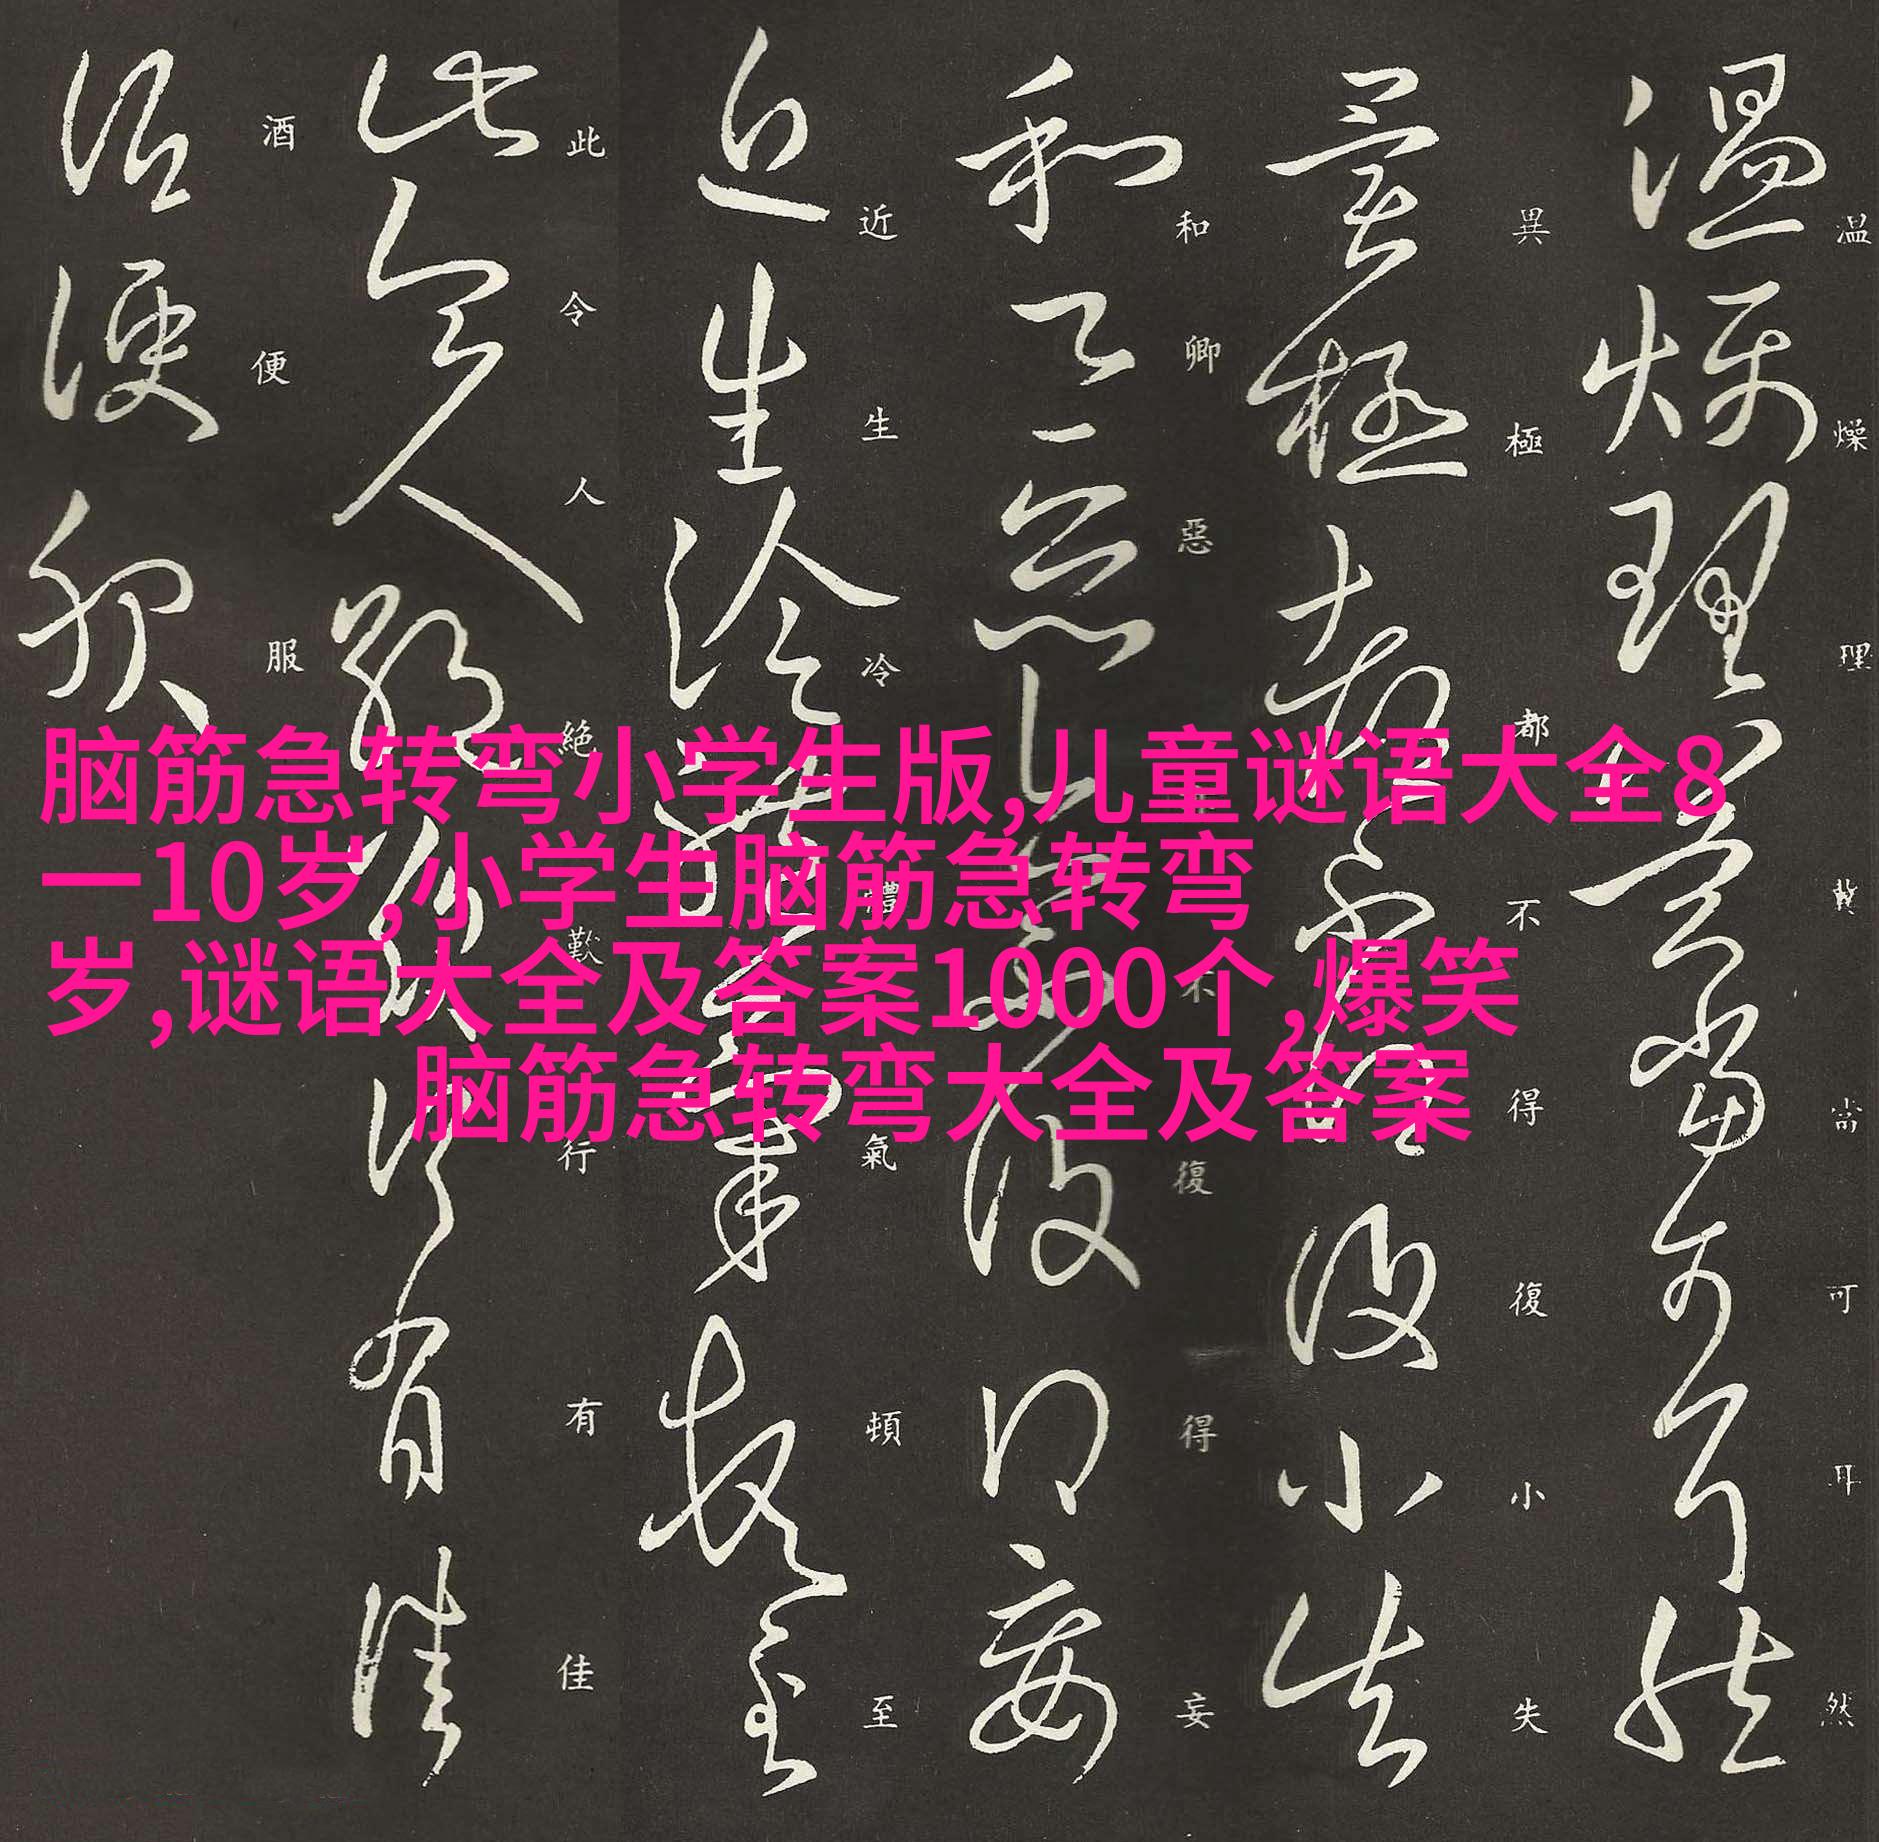 温燥理冀當可耳然
異極都不得復小失
和卿惡不復得妄
近生冷體氣頓至
此令人絕歎行有佳
酒便服
脑筋急转弯小学生版,儿童谜语大全8
一10岁,小学生脑筋急转弯
岁,谜语大全及答案1000个,爆笑
脑筋急转弯大全及答案